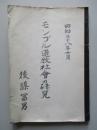 昭和十八年十月
モンゴル遊牧社會の發見
後藤冨男